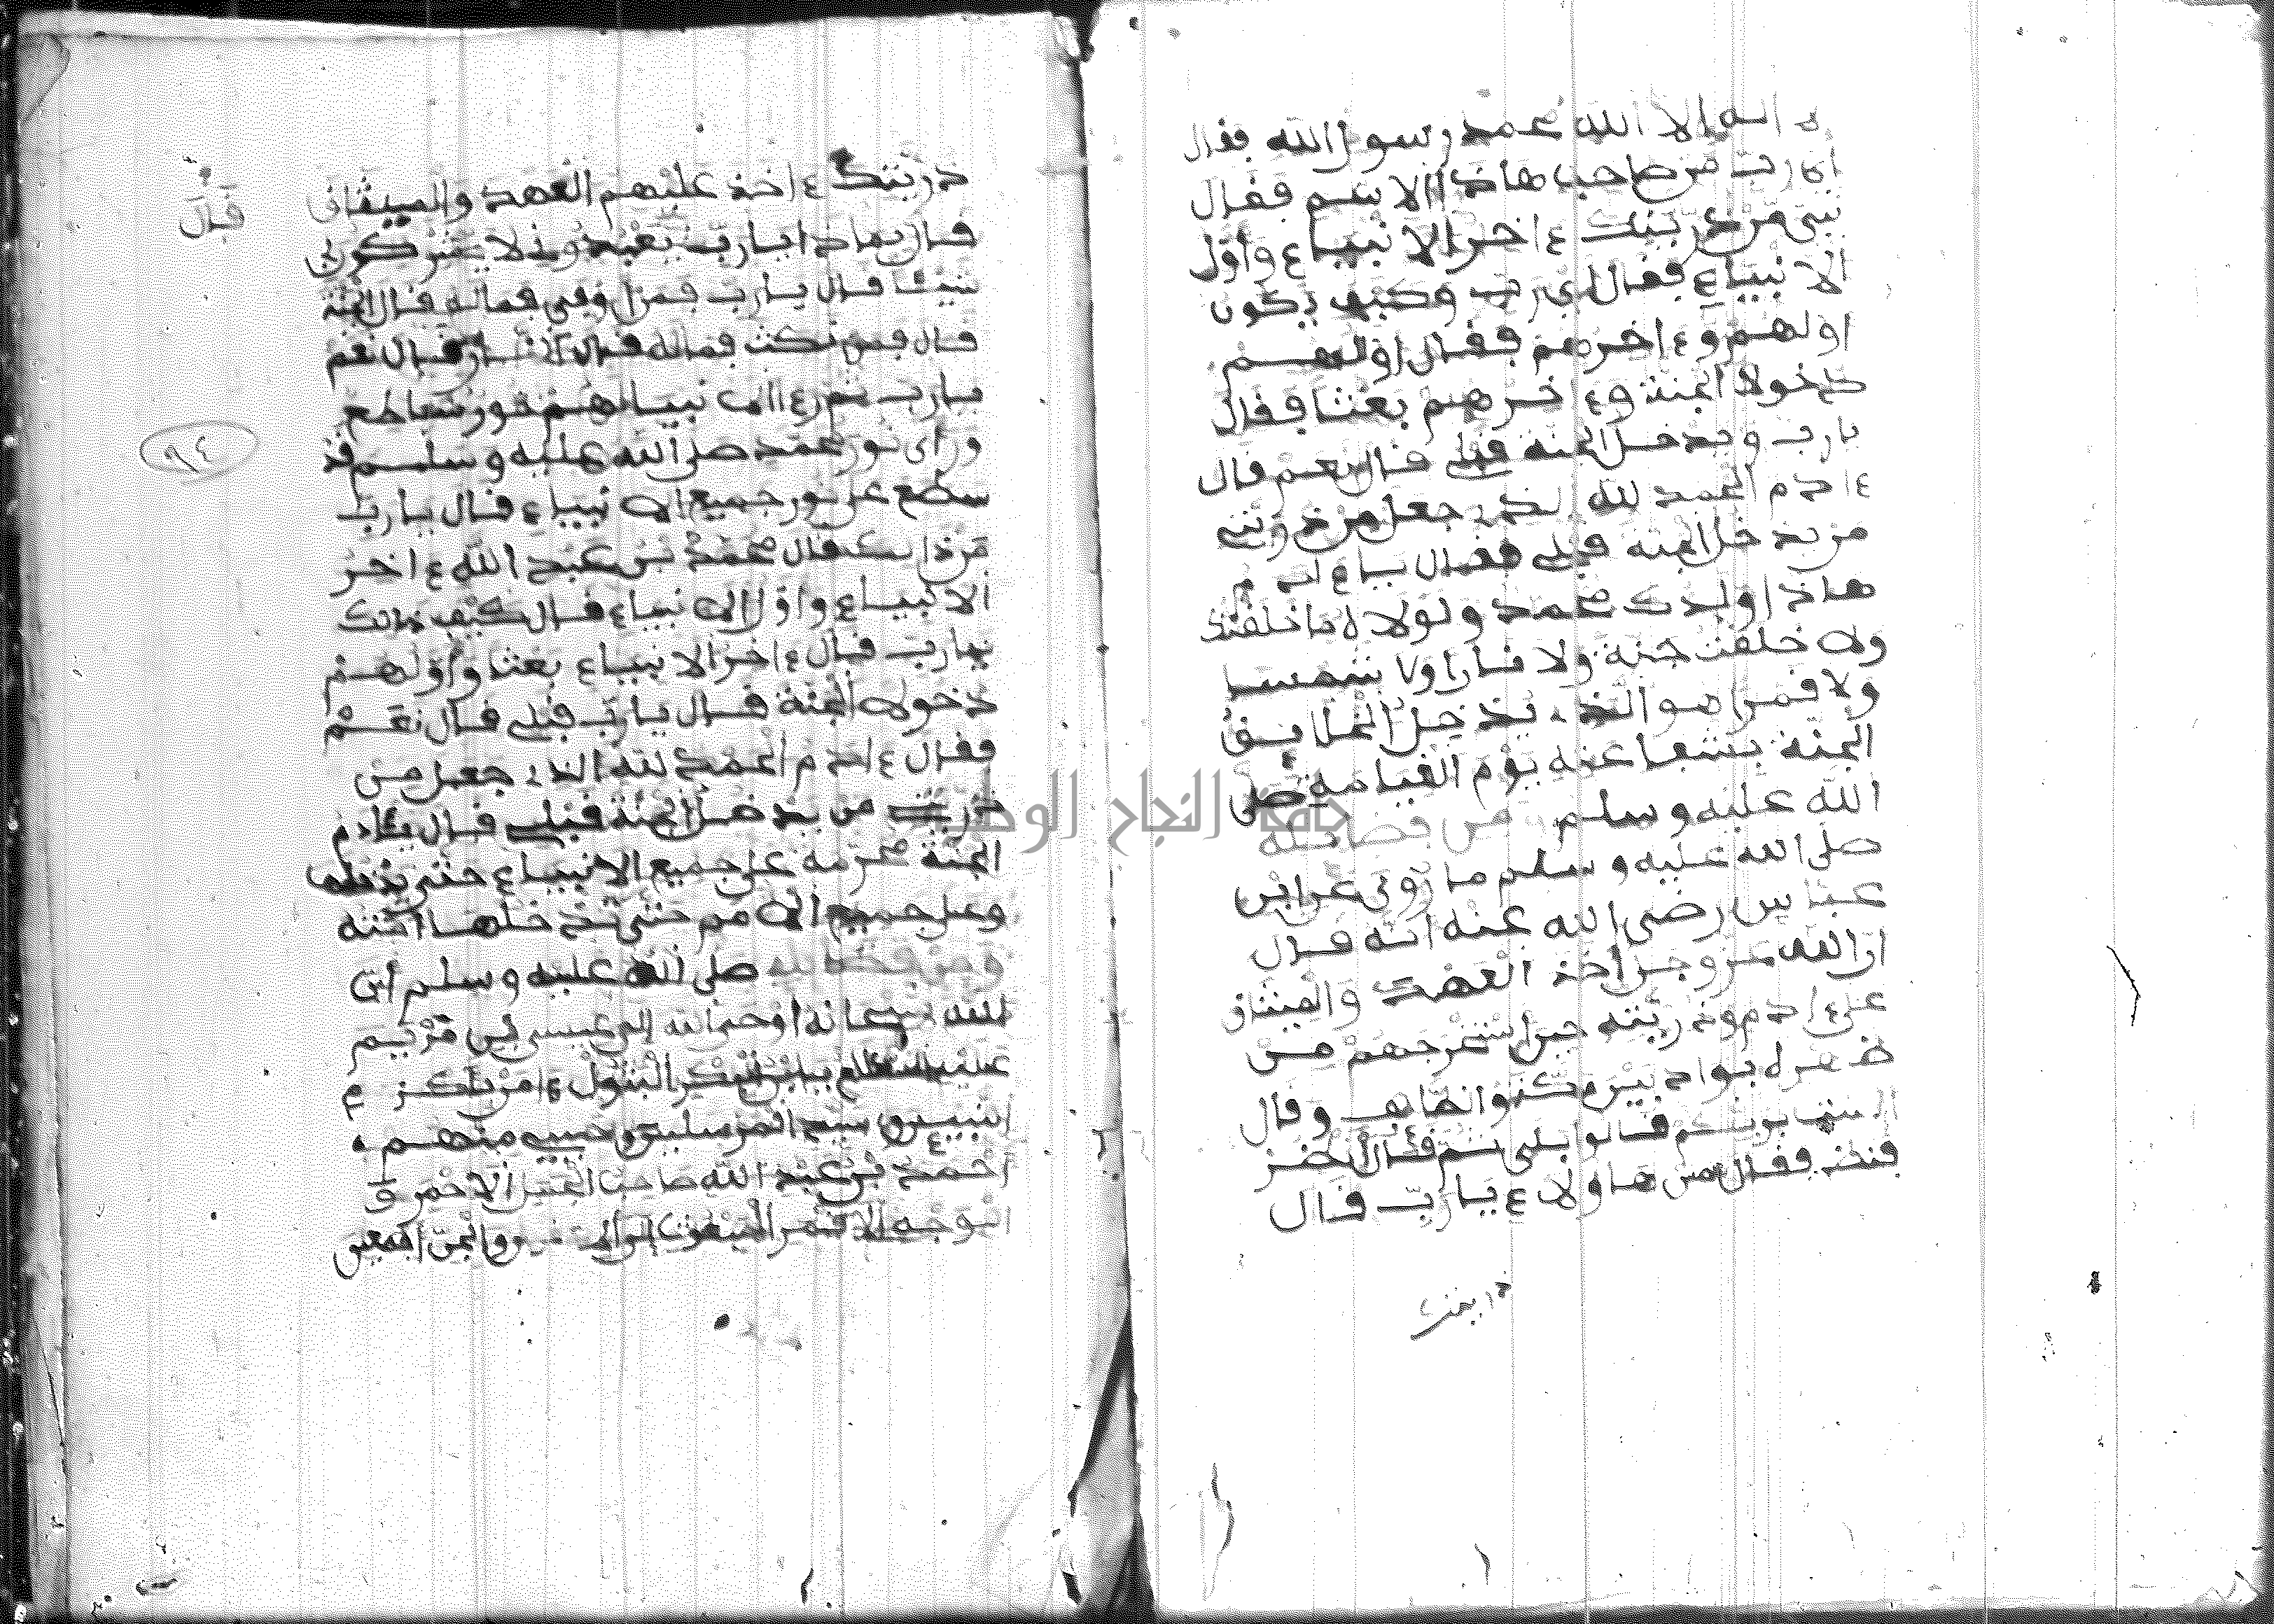 لا اله الا الله محمد رسول الله فقال
اي رب من صاحب هاذا الاسم فقال
نبي من ذريتك ءاخر الانبياء واول
الانبياء فقال اي رب وكيف يكون
اولهم وءاخرهم فقال اولهم
دخولا الجنة وءاخرهم بعثا فقال
يارب ويدخل الجنة قبلي قال نعم قال
ءادم الحمد لله الذي جعل من ذريتي
من يدخل الجنة قبلي فقال ياءادم
هاذا ولدك محمد ولولاه ما خلقتك
ولا خلقت جنة ولا نارا ولا شمسا
ولا قمرا هو الذي يدخل الخلايق
الجنة بشفاعته يوم القيامة صلى
الله عليه وسلم من فضائله
صلى الله عليه وسلم ما روي عن ابن
عباس رضي الله عنه انه قال
ان الله عز وجل اخذ العهد والميثاق
على ءادم وذريته حين استخرجهم من
ظهره بواد بين مكة والطائف وقال
الست بربكم قالوا بلى ثم قال انظر
فنظر فقال من هاولاء يارب قال
ذريتك
ذريتك ءاخذ عليهم العهد والميثاق
قال بماذا يا رب يعبدوني ولا يشركو بي
شيئا قال يارب فمن اوفى فماله قال الجنة
قال فمن نكث فماله قال النار قال نعم
يارب ثم رءا الانبياء لهم نور ساطع
وراى نور محمد صلى الله عليه وسلم قد
سطع على نور جميع الانبياء قال يارب
من ذالك قال محمد بن عبد الله ءاخر
الانبياء واول الانبياء قال كيف ذالك
يارب قال ءاخر الانبياء بعثا واولهم
دخولا الجنة قال يارب قبلي قال نعم
فقال ءادم الحمد لله الذي جعل من
ذريتي من يدخل الجنة قبلي قال يئادم
الجنة محرمة على جميع الانبياء حتى يدخلها
وعلى جميع الامم حتى تدخلها امته
ومن فضائله صلى الله عليه وسلم ان
الله سبحانه اوحى الله الى عيسى بن مريم
عليه السلام يابن البكر البتول ءامن باكرم
النبيين سيد المرسلين وحبيبي منهم
احمد بن عبد الله صاحب الجمل الاحمر و
الوجه الاقمر المبعوث الى الانس والجن اجمعين
قال
٩٤
جامعة النجاح الوطنية